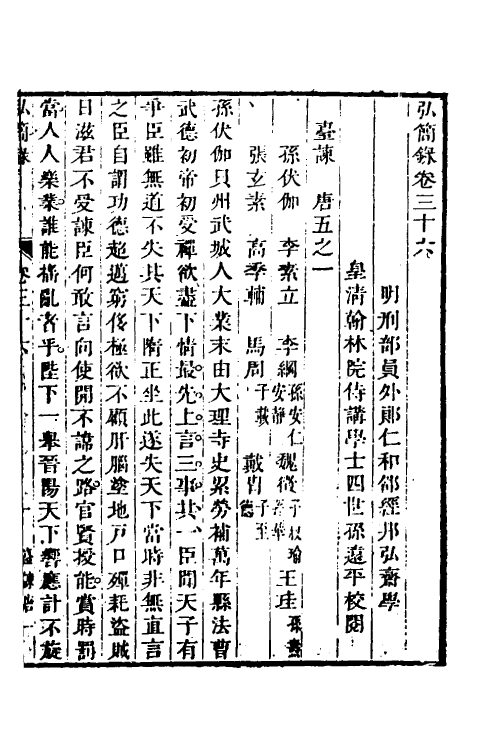 弘簡錄卷三十六
明刑部員外郎仁和邵經邦弘齋學
皇清翰林院侍講學士四世孫遠平校閱
臺諫　唐五之一
孫伏伽　李素立　李綱孫安仁　安靜　魏徵子叔瑜　王珪
張玄素　高季輔　馬周子載　戴冑子至德
孫伏伽貝州武城人大業末由大理寺史累勞補萬年縣法曹
武德初帝初受禪欲盡下情最先上言三事其一臣聞天子有
爭臣雖無道不失其天下隋正坐此遂失天下當時非無直言
之臣自謂功德超邁窮侈極欲不顧肝腦塗地戶口殫耗盜賊
日滋君不受諫臣何敢言向使開不諱之路官賢授能賞時罰
當人人樂業誰能搖亂者乎陛下一舉晉陽天下響應計不旋
弘簡錄　卷三十六